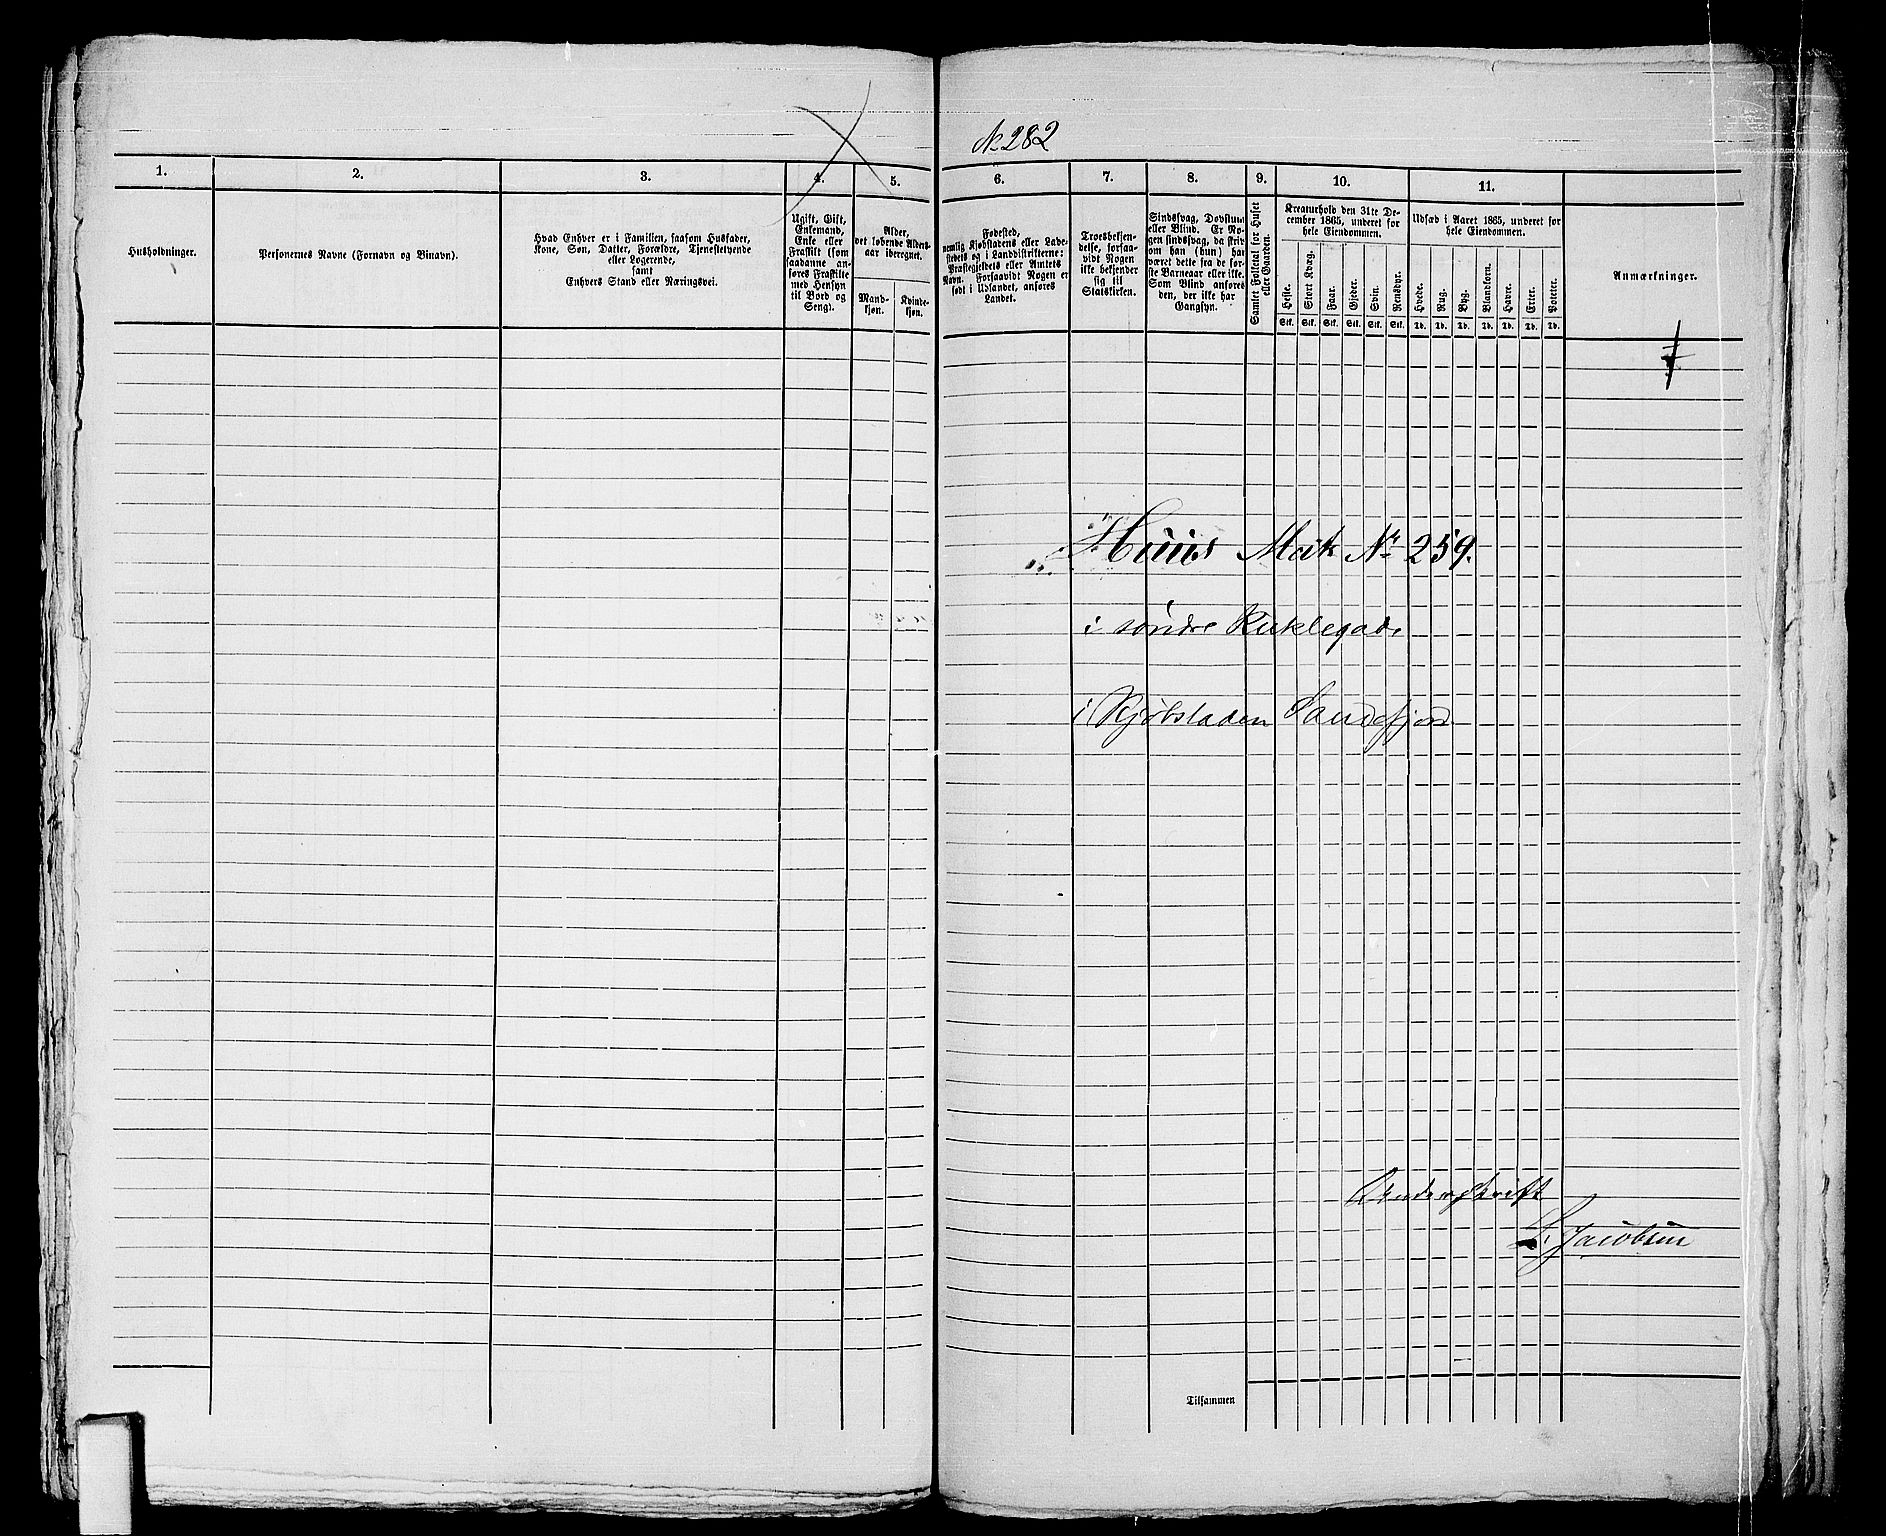 № 282
1.
2.
3.
4.
5.
6.
7.
8.
9.
10.
11.
Husholdninger.
Personernes Navne (Fornavn og Binavn).
Hvad Enhver er i Familien, saasom Husfader,
Kone, Søn, Datter, Forældre, Tjenestetyende
eller Logerende,
samt
Enhvers Stand eller Næringsvei.
Ugift, Gift,
Enkemand,
Enke eller
Fraskilt (som
saadanne an-
føres Fraskilte
med Hensyn
til Bord og
Seng).
Alder,
det løbende Alders-
aar iberegnet.
Mand-
kjøn.
Kvinde-
kjøn.
Fødested,
nemlig Kjøbstadens eller Lade-
stedets og i Landdistrikterne:
Præstegjeldets eller Amtets
Navn. Forsaavidt Nogen er
født i Udlandet, anføres
Landet.
Troesbekjen-
delse, forsaa-
vidt Nogen
ikke bekjender
sig til
Statskirken.
Sindssvag, Døvstum
eller Blind. Er No-
gen sindssvag, da skriv
om han (hun) har
været dette fra de før-
ste Barneaar eller ikke.
Som Blind anføres
den, der ikke har
Gangsyn.
Samlet Folketal for Huset
eller Gaarden.
Kreaturhold den 31te De-
cember 1865, underet for
hele Eiendommen.
Heste.
Stort Kvæg.
Faar.
Gjeder.
Svin.
Rensdyr.
Stk.
Stk.
Stk.
Stk.
Stk.
Stk.
Udsæd i Aaret 1865, underet for
hele Eiendommen.
Hvede.
Rug.
Byg.
Blandkorn.
Havre.
Erter.
Poteter.
Td.
Td.
Td.
Td.
Td.
Td.
Td.
Anmærkninger.
Huus Matk Nr 259.
i søndre
i Kjøbstaden Sandefjord
Underskrift
L. Jacobsen
Tilsammen